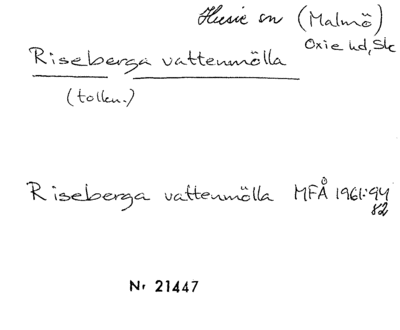 Husie sn (Malmö)
Oxie hd, Sk
Riseberga vattenmölla
(tolkn.)
Riseberga vattenmölla MFÅ 1961:94
82
Nr 21447